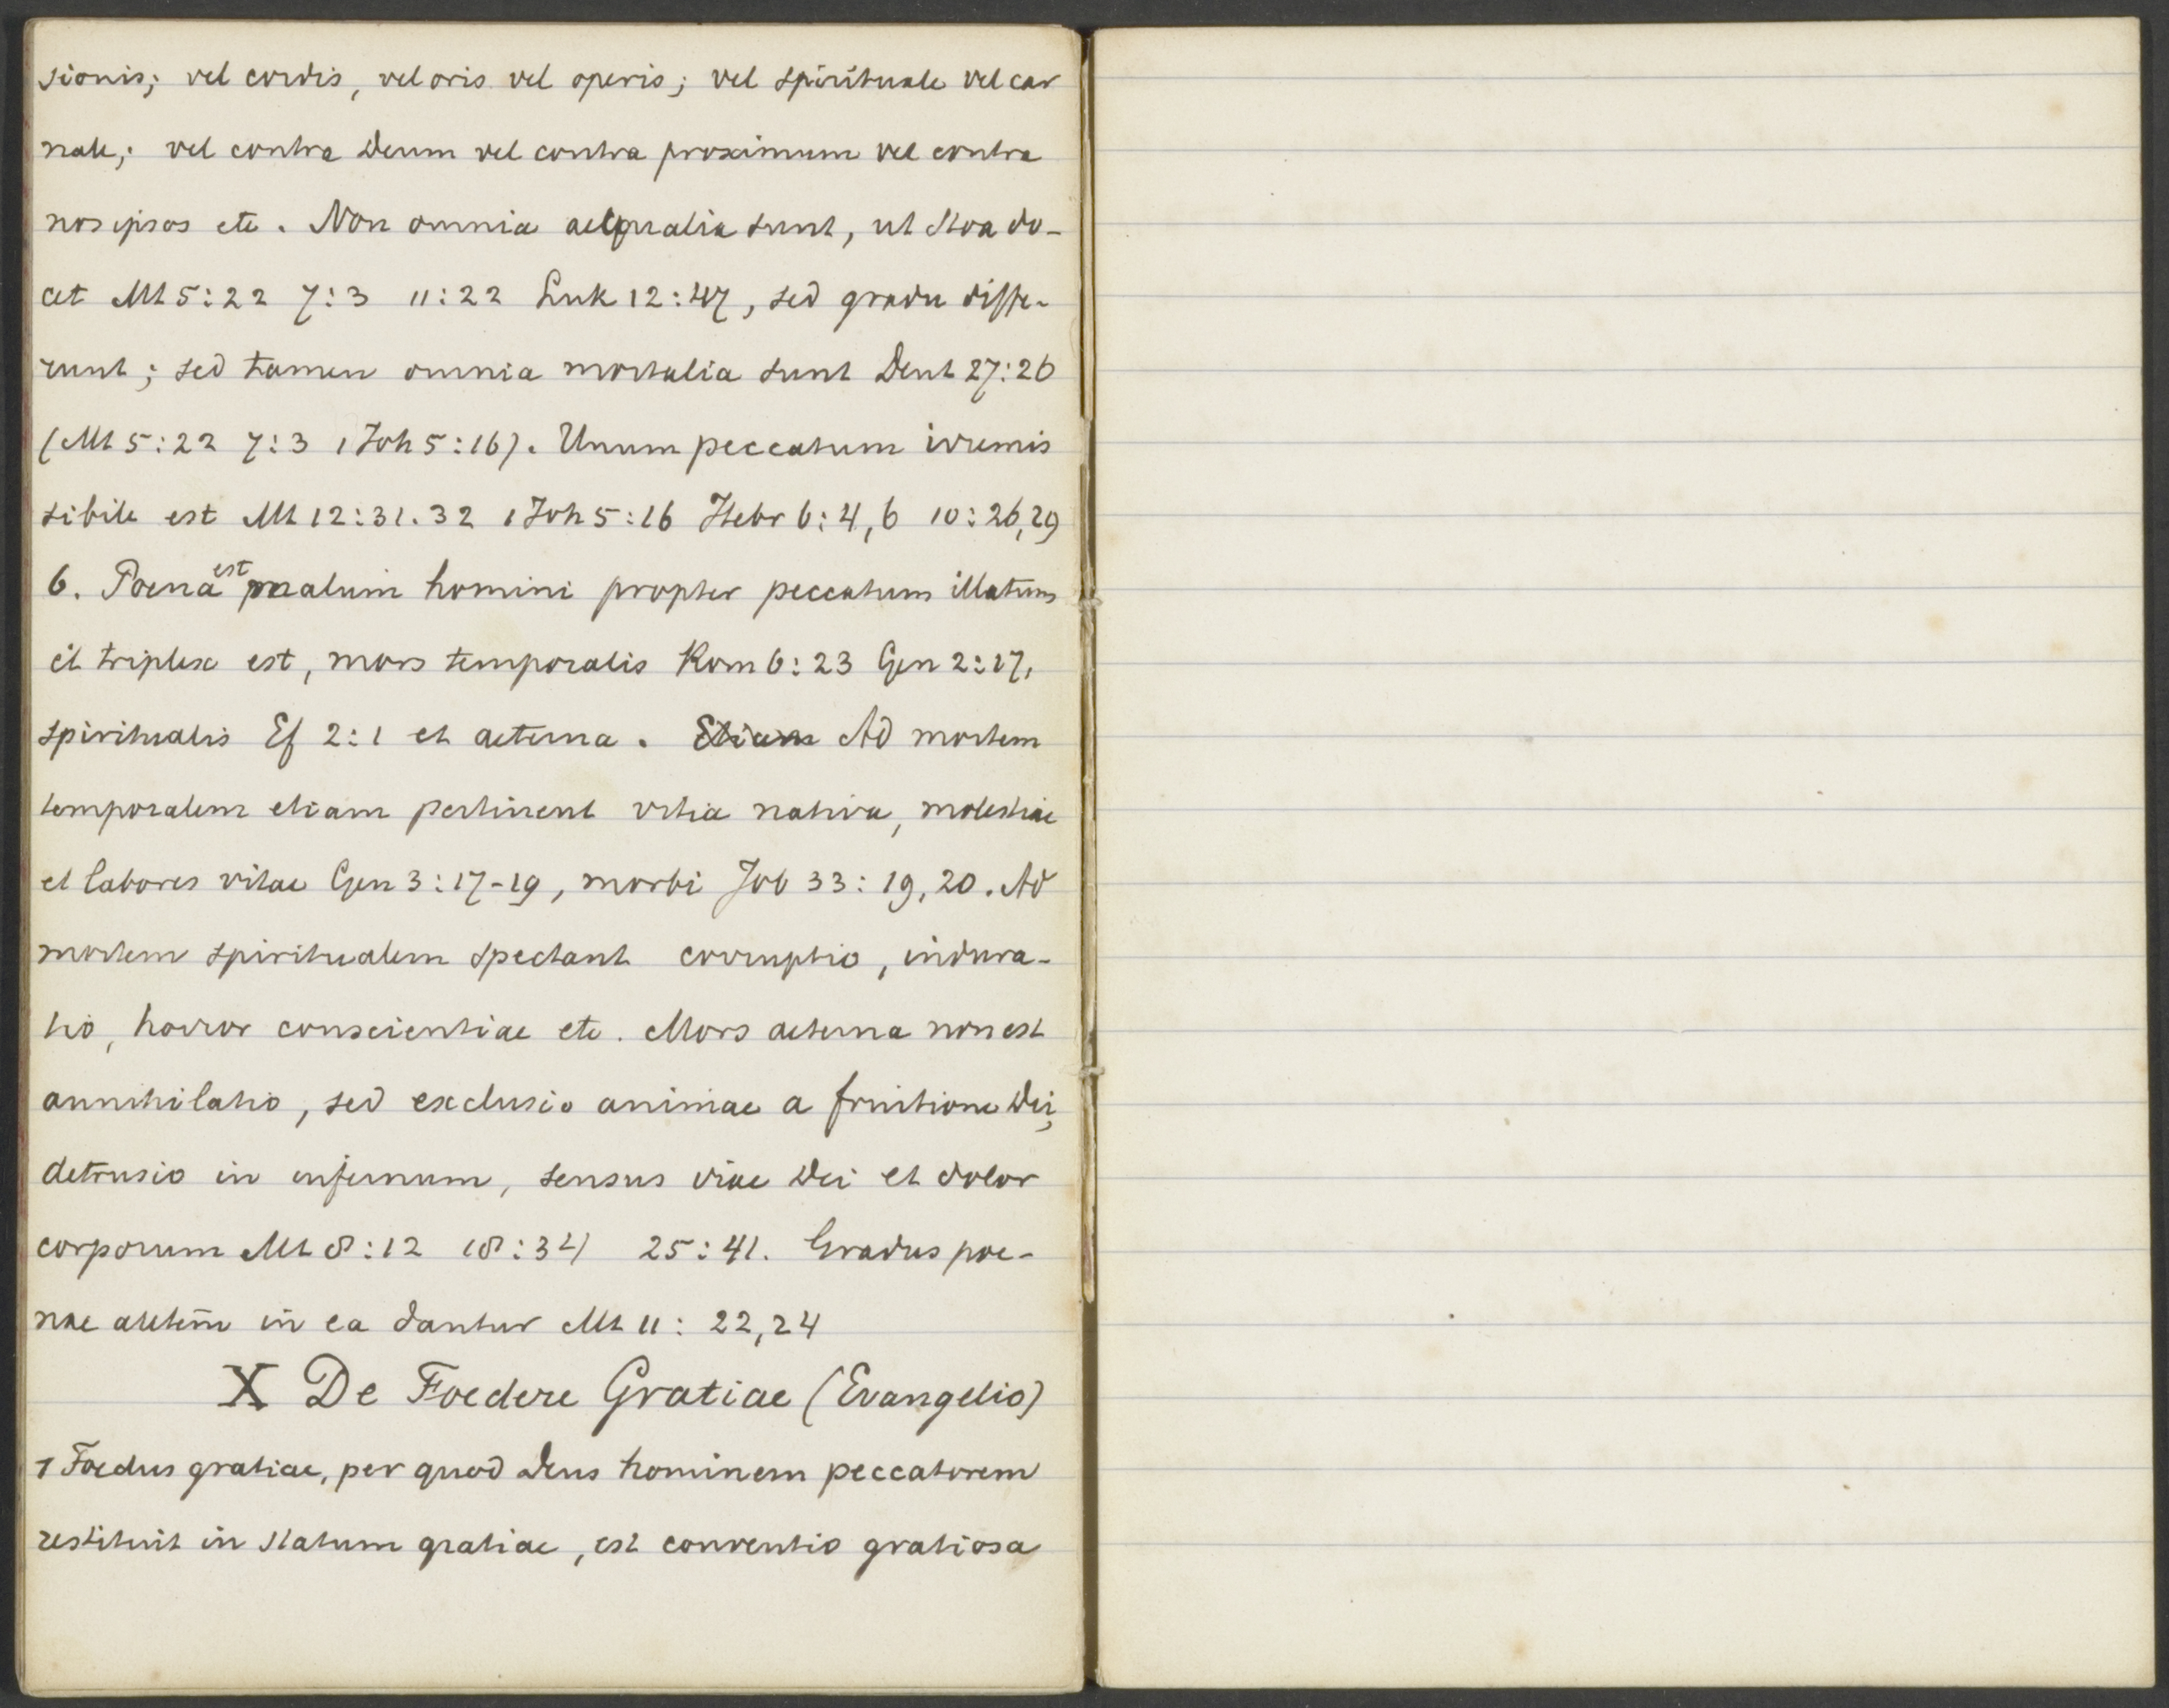 sionis; vel cordis, vel oris vel operis; vel spirituale vel car
nale; vel contra Deum vel contra proximum vel contra
nos ipsos etc. Non omnia aequalia sunt, ut Stoa do-
cet Mt 5:22 7:3 11:22 Luk 12:47, sed gradu diffe-
runt; sed tamen omnia mortalia sunt Deut 27:26
(Mt 5:22 7:3 1 Joh 5:16). Unum peccatum irremis
sibile est Mt 12:31.32 1 Joh 5:16 Hebr 6:4,6 10:26,29
6. Poena est malum homini propter peccatum illatum
et triplex est, mors temporalis Rom 6:23 Gen 2:17,
spiritualis Ef 2:1 et aeterna. Etiam Ad mortem
temporalem etiam pertinent vitia nativa, molestiae
et labores vitae Gen 3:17-19, morbi Job 33:19,20. Ad
mortem spiritualem spectant corruptio, indura-
tio, horror conscientiae etc. Mors aeterna non est
annihilatio, sed exclusio animae a fruitione Dei,
detrusio in infernum, sensus irae Dei et dolor
corporum Mt 8:12 18:34 25:41. Gradus poe-
nae autem in ea dantur Mt 11:22,24
X De Foedere Gratiae (Evangelio)
1 Foedus gratiae, per quod Deus hominem peccatorem
restituit in statum gratiae, est conventio gratiosa